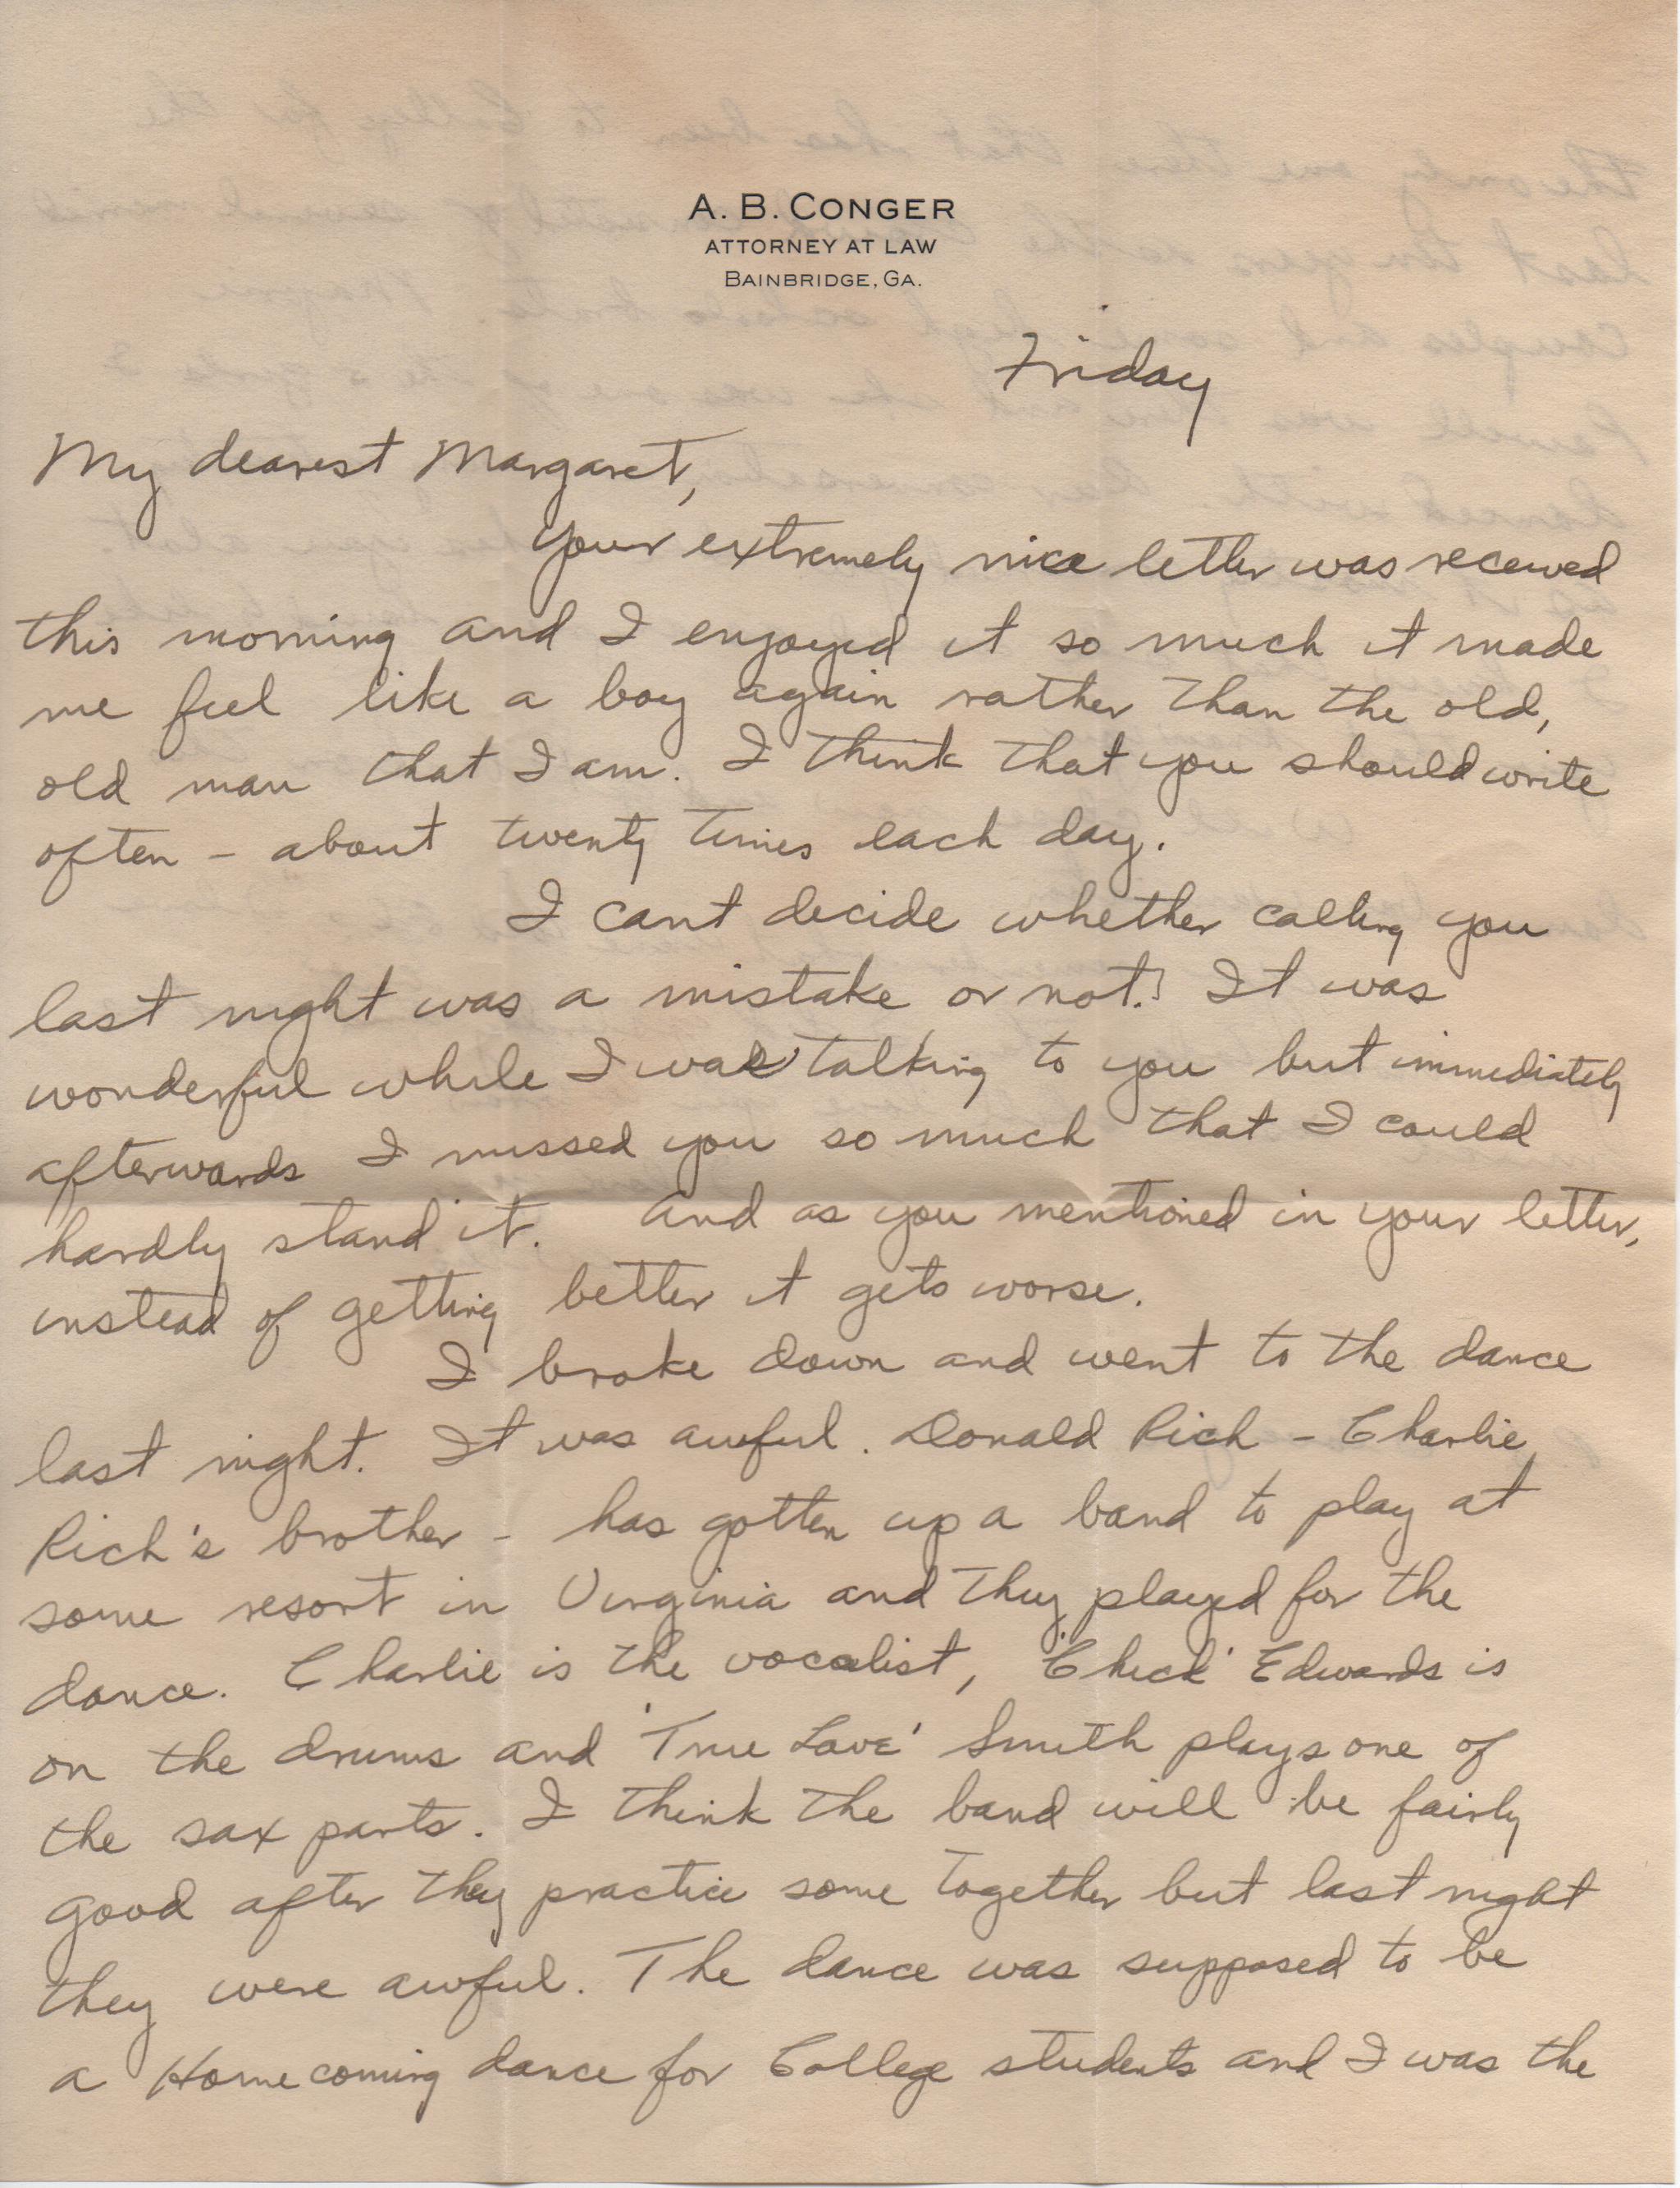 A. B. CONGER
ATTORNEY AT LAW
BAINBRIDGE, GA.
Friday
My dearest Margaret,
Your extremely nice letter was received
this morning and I enjoyed it so much it made
me feel like a boy again rather than the old,
old man that I am. I think that you should write
often - about twenty times each day.
I cant decide whether calling you
last night was a mistake or not. It was
wonderful while I was talking to you but immediately
afterwards I missed you so much that I could
hardly stand it. And as you mentioned in your letter,
instead of getting better it gets worse.
I broke down and went to the dance
last night. It was awful. Donald Rich - Charlie
Rich's brother - has gotten up a band to play at
some resort in Virginia and they played for the
dance. Charlie is the vocalist, 'Chick' Edwards is
on the drums and 'True Love' Smith plays one of
the sax parts. I think the band will be fairly
good after they practice some together but last night
they were awful. The dance was supposed to be
a Homecoming dance for College students and I was the